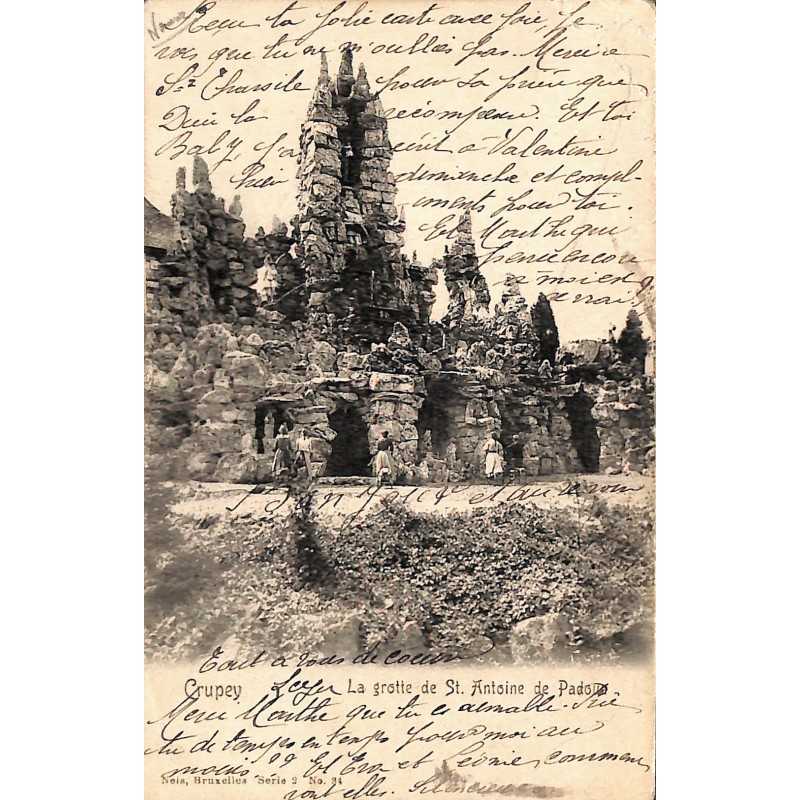 Reçu ta jolie carte avec joie, je
vois que tu ne m'oublies pas. Merci à
pour la prière que
Dieu la récompense. Et toi
Baby, j'ai écrit à Valentine
hier dimanche et compl-
iments pour toi.
Et Marthe qui
encore
à moi est
ce vrai.
Bonjour et au revoir
Tout à vous de coeur
Crupey La grotte de St. Antoine de Padoue
Merci Marthe que tu es aimable. Prie
tu de temps en temps pour moi au
moins ?? Et Eva et Léonie comment
vont elles.
Nels, Bruxelles Serie 2 No. 34